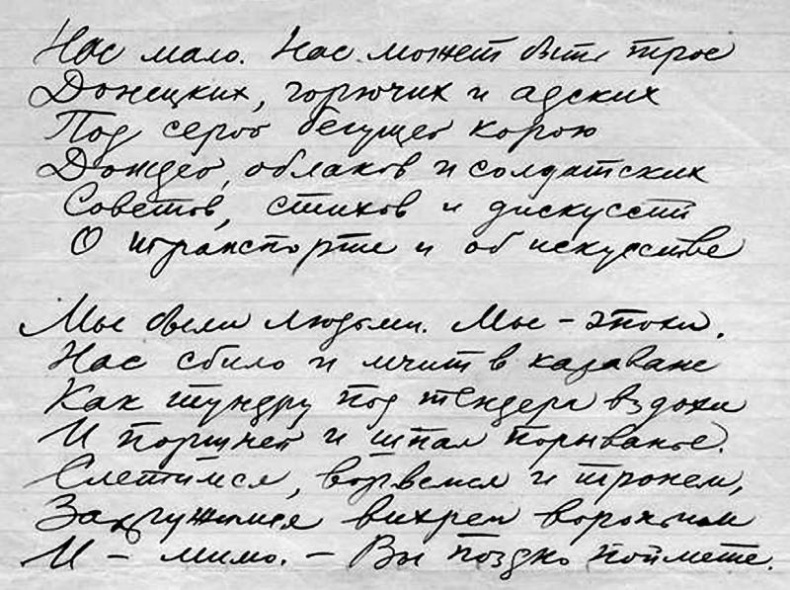 Нас мало. Нас может быть трое
Донецких, горючих и адских
Под серой бегущей корою
Дождей, облаков и солдатских
Советов, стихов и дискуссий
О транспорте и об искусстве
Мы были людьми. Мы – эпохи.
Нас сбило и мчит в караване
Как тундру под тендера вздохи
И поршней и шпал порыванье.
Слетимся, ворвемся и тронем,
Закружимся вихрем вороньим
И – мимо. – Вы поздно поймете.